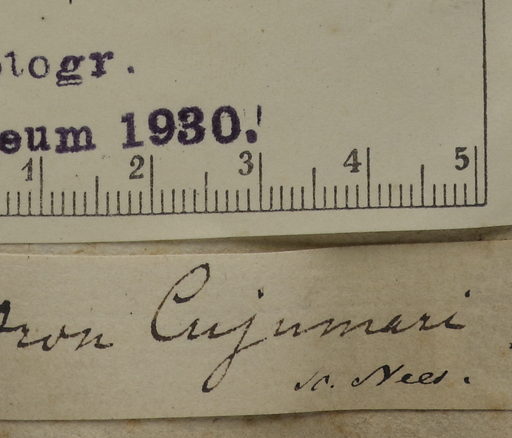 ologr.
eum 1930.
1 2 3 4 5
dron Cujumari
Nees.